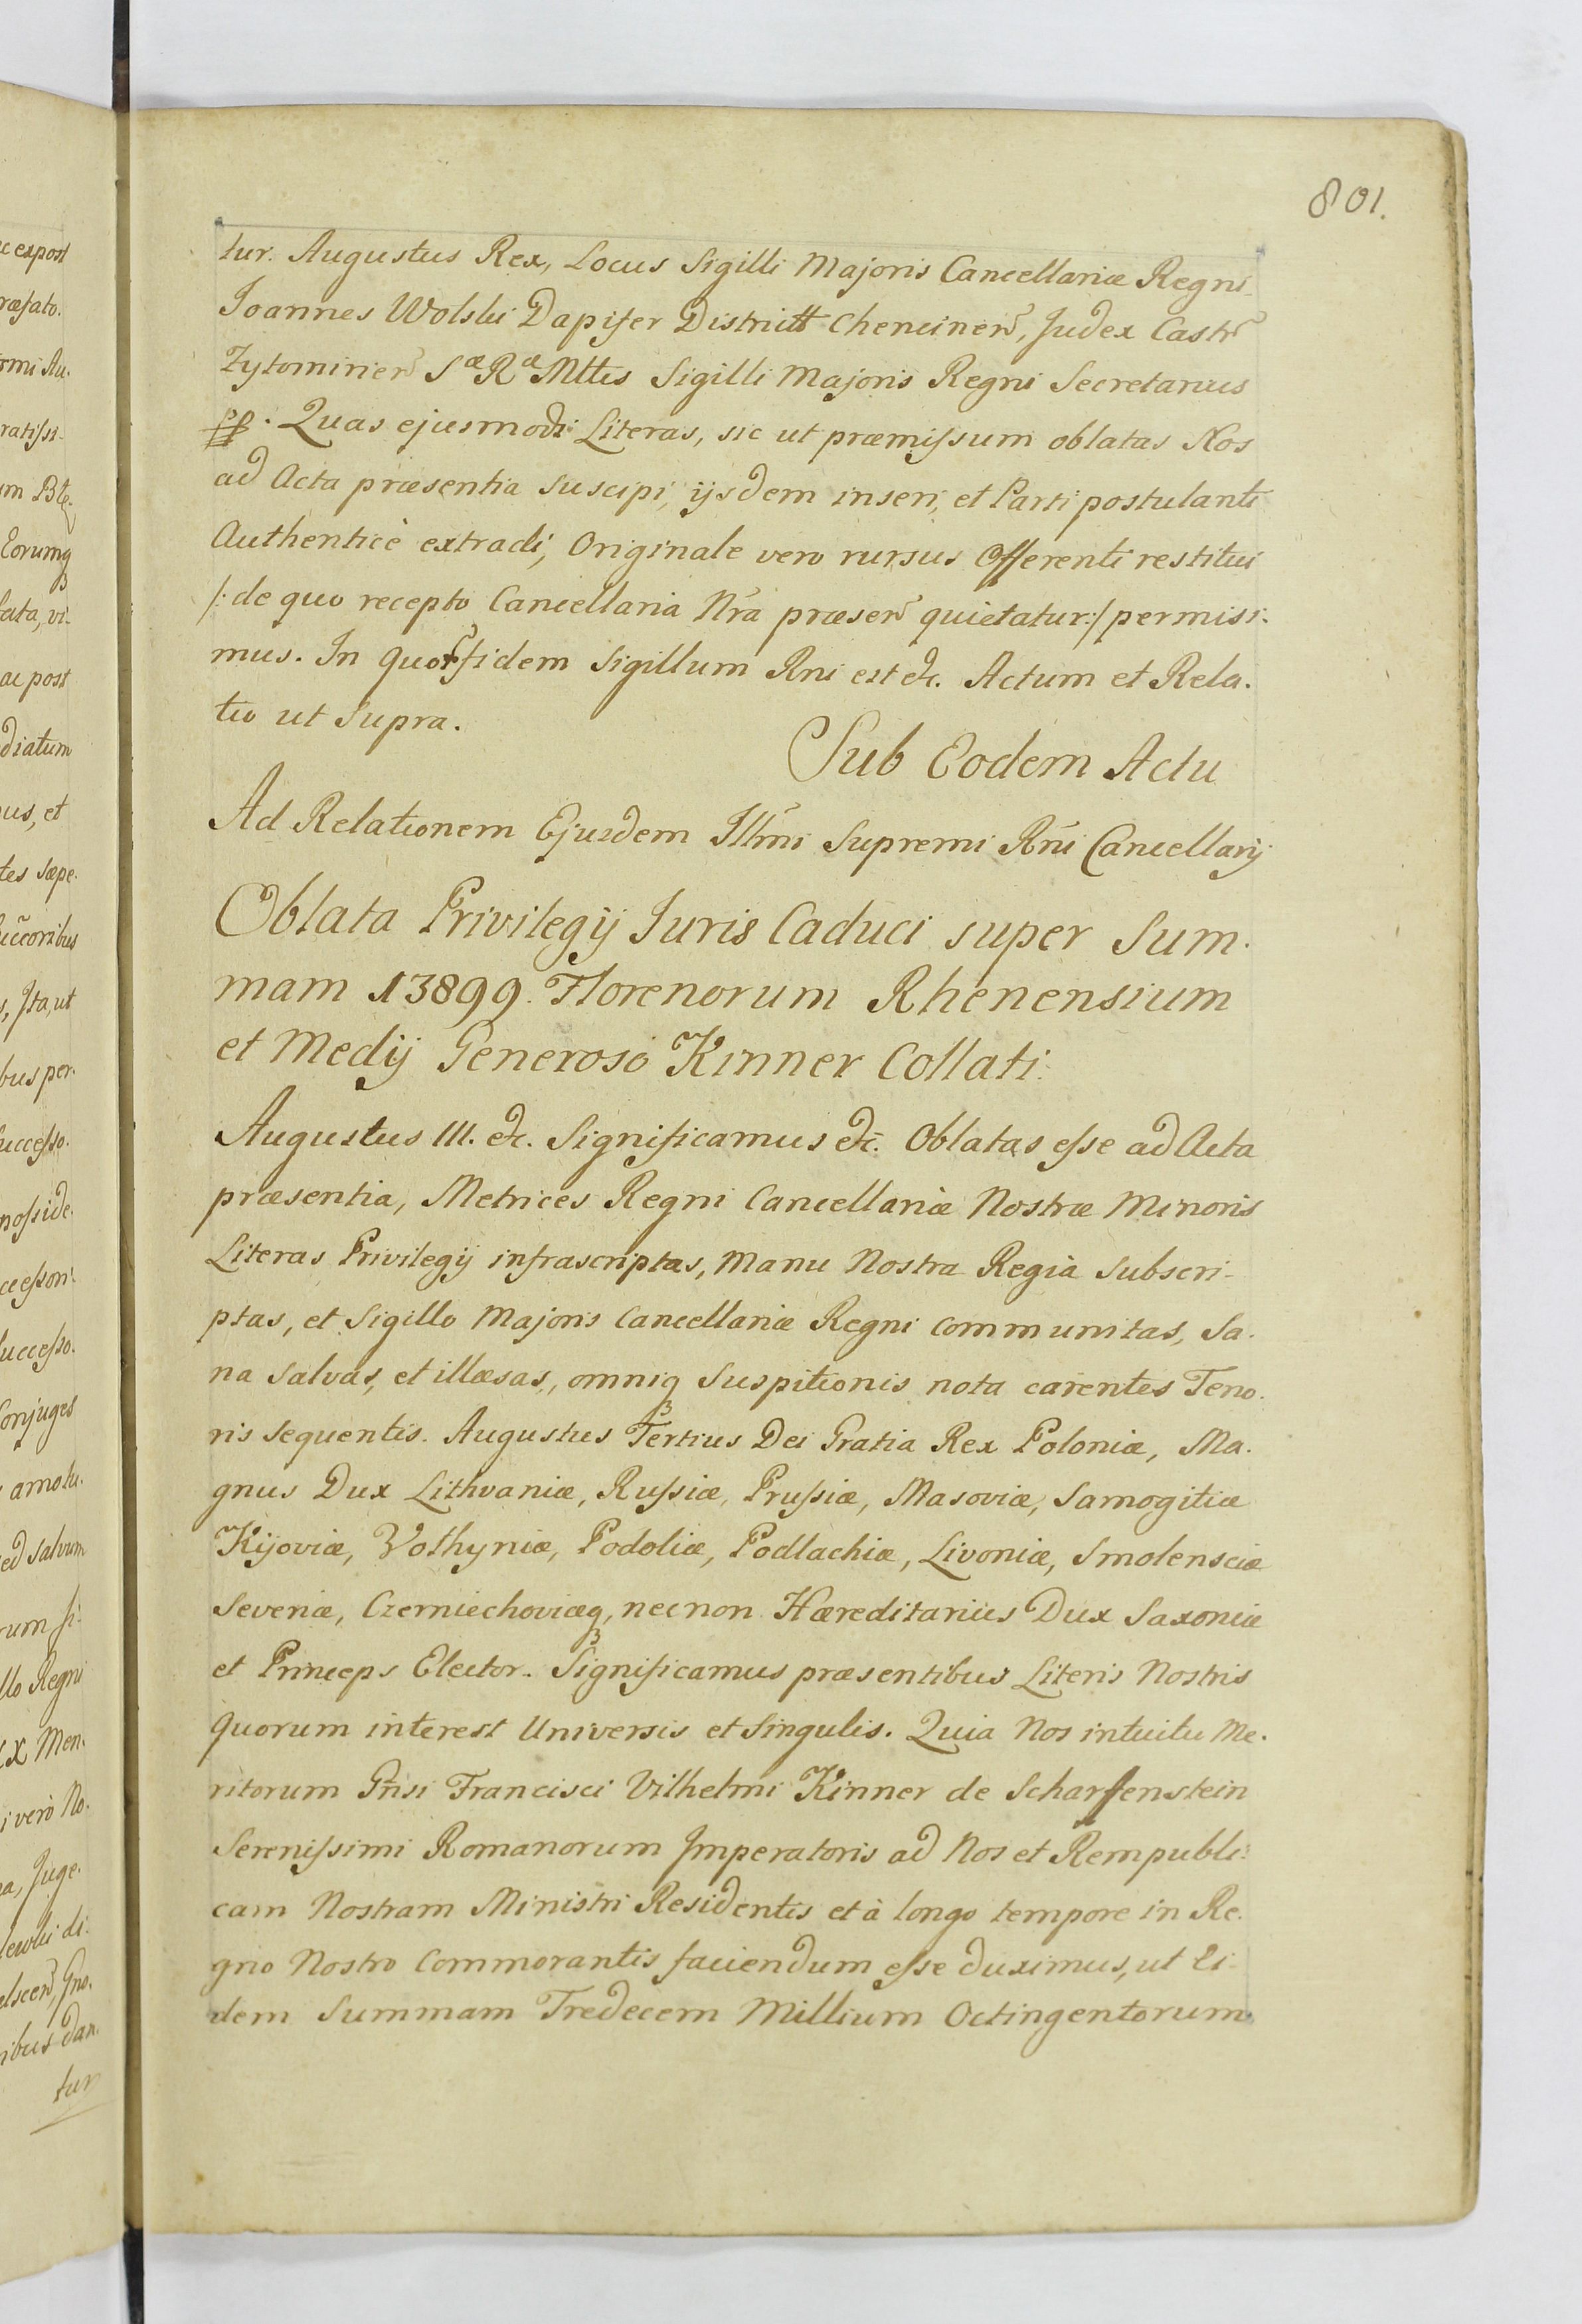 801.
tur. Augustus Rex, Locus Sigilli Majoris Cancellariæ Regni
Joannes Wolski Dapifer District Chencinen, Judex Castr
Zytominien Sæ Ræ Mttis Sigilli Majoris Regni Secretarius
pp. Quas ejusmodi Literas, sic ut præmissum oblatas Nos
ad Acta præsentia suscipi, ijsdem inseri, et Parti postulanti
Authenticè extradi, Originale vero rursus Offerenti restitui
/: de quo recepto Cancellaria Nr̃a præsen quietatur :/ permisi-
mus. In quor fidem Sigillum Rni est etc. Actum et Rela-
tio ut Supra.
Sub Eodem Actu
Ad Relationem Ejusdem Illm̃i Supremi Rñi Cancellarij
Oblata Privilegij Juris Caduci super Sum-
mam 13899. Florenorum Rhenensium
et Medij Generoso Kinner Collati.
Augustus III. etc. Significamus etc. Oblatas esse ad Acta
præsentia, Metrices Regni Cancellariæ Nostræ Minoris
Literas Privilegij infrascriptas, Manu Nostra Regia Subscri-
ptas, et Sigillo Majoris Cancellariæ Regni communitas, Sa-
na Salvas, et illæsas, omniq3 Suspitionis nota carentes Teno-
ris sequentis. Augustus Tertius Dei Gratia Rex Poloniæ, Ma-
gnus Dux Lithvaniæ, Russiæ, Prussiæ, Masoviæ, Samogitiæ
Kijoviæ, Volhyniæ, Podoliæ, Podlachiæ, Livoniæ, Smolensciæ
Severiæ, Czerniechoviæq3, necnon Hæreditarius Dux Saxoniæ
et Princeps Elector. Significamus præsentibus Literis Nostris
quorum interest Universis et Singulis. Quia Nos intuitu Me-
ritorum Gñsi Francisci Vilhelmi Kinner de Scharffenstein
Serenissimi Romanorum Imperatoris ad Nos et Rempubli-
cam Nostram Ministri Residentis et à longo tempore in Re-
gno Nostro Commorantis faciendum esse duximus, ut Ei-
dem Summam Tredecem Millium Octingentorum